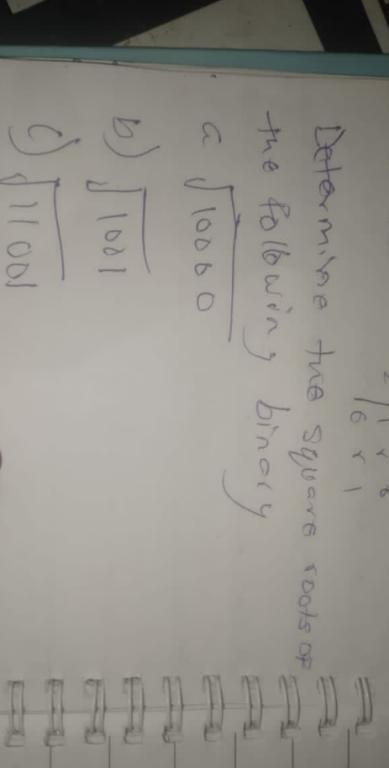 Determine the square roots of
the following binary
a √10000
b) √1001
c) √11001